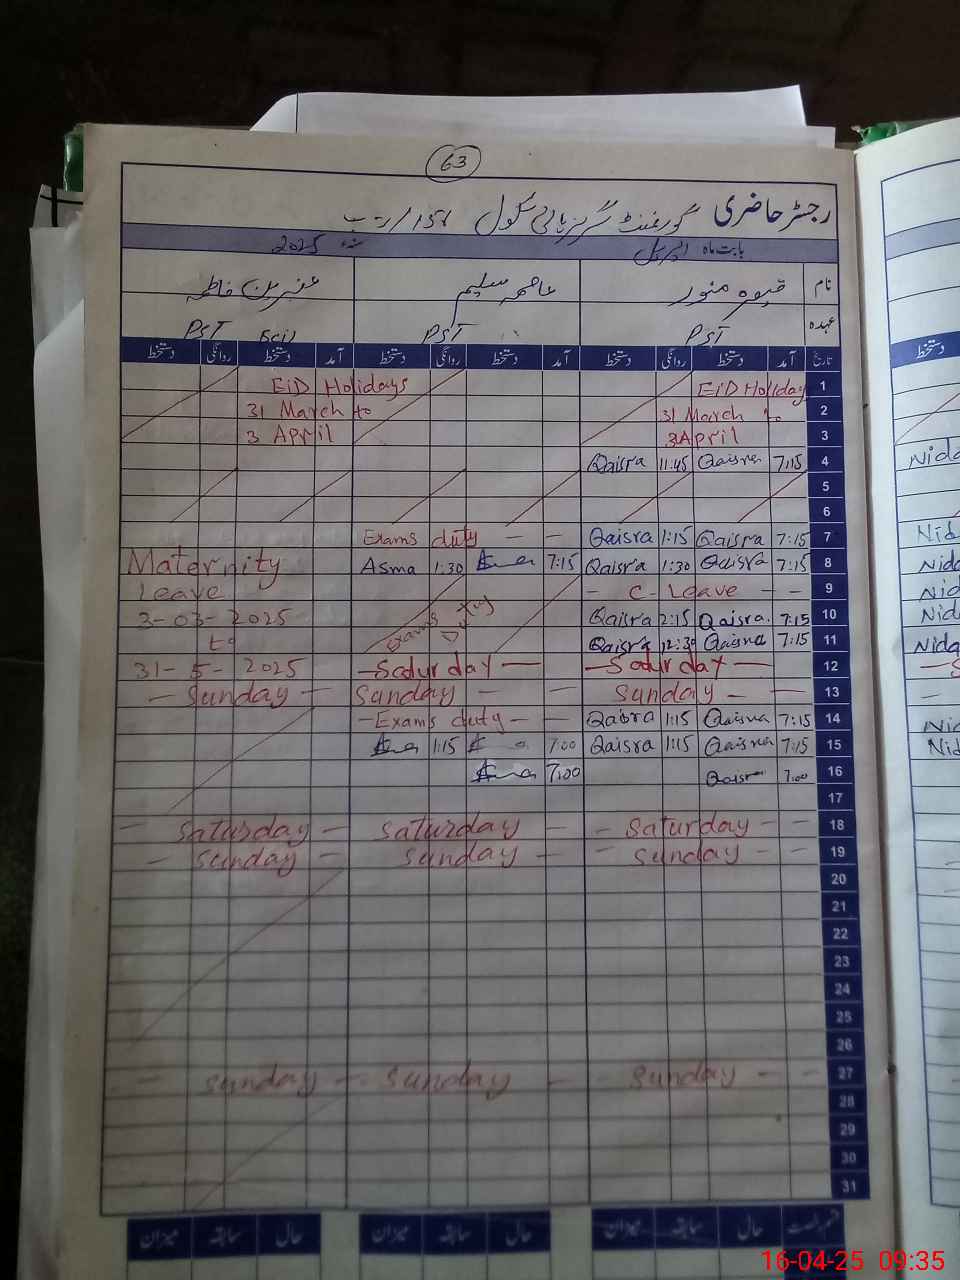 63
رجسٹر حاضری گورنمنٹ گرلز ہائی سکول
بابت ماہ اپریل سنہ 2025
نام منور عاصمہ سلیم عنبرین فاطمہ
عہدہ PST PST PST
تاریخ آمد دستخط روانگی دستخط آمد دستخط روانگی دستخط آمد دستخط روانگی دستخط
EiD Holidays EiD Holiday 1
31 March to 31 March to 2
3 April 3 April 3
Qaisra 11:45 Qaisra 7:15 4
5
6
Exams duty — — Qaisra 1:15 Qaisra 7:15 7
Maternity Asma 1:30 7:15 Qaisra 1:30 Qaisra 7:15 8
Leave - C-Leave - - 9
3-03-2025 Exams Duty Qaisra 2:15 Qaisra. 7:15 10
to Qaisra 12:30 Qaisra 7:15 11
31-5-2025 —Saturday— —Saturday— 12
— Sunday — Sunday — — Sunday - — 13
-Exams duty- - Qaisra 1:15 Qaisra 7:15 14
1:15 7:00 Qaisra 1:15 Qaisra 7:15 15
7:00 Qaisr 7:00 16
17
— Saturday — Saturday — - Saturday - - 18
- Sunday — Sunday — - Sunday - - 19
20
21
22
23
24
25
26
Sunday — Sunday — Sunday - - 27
28
29
30
31
قسم رخصت حال سابقہ میزان حال سابقہ میزان حال سابقہ میزان
دستخط
Nida
Nid
Nida
Nid
Nida
Nida
Nid
Nid
16-04-25 09:35